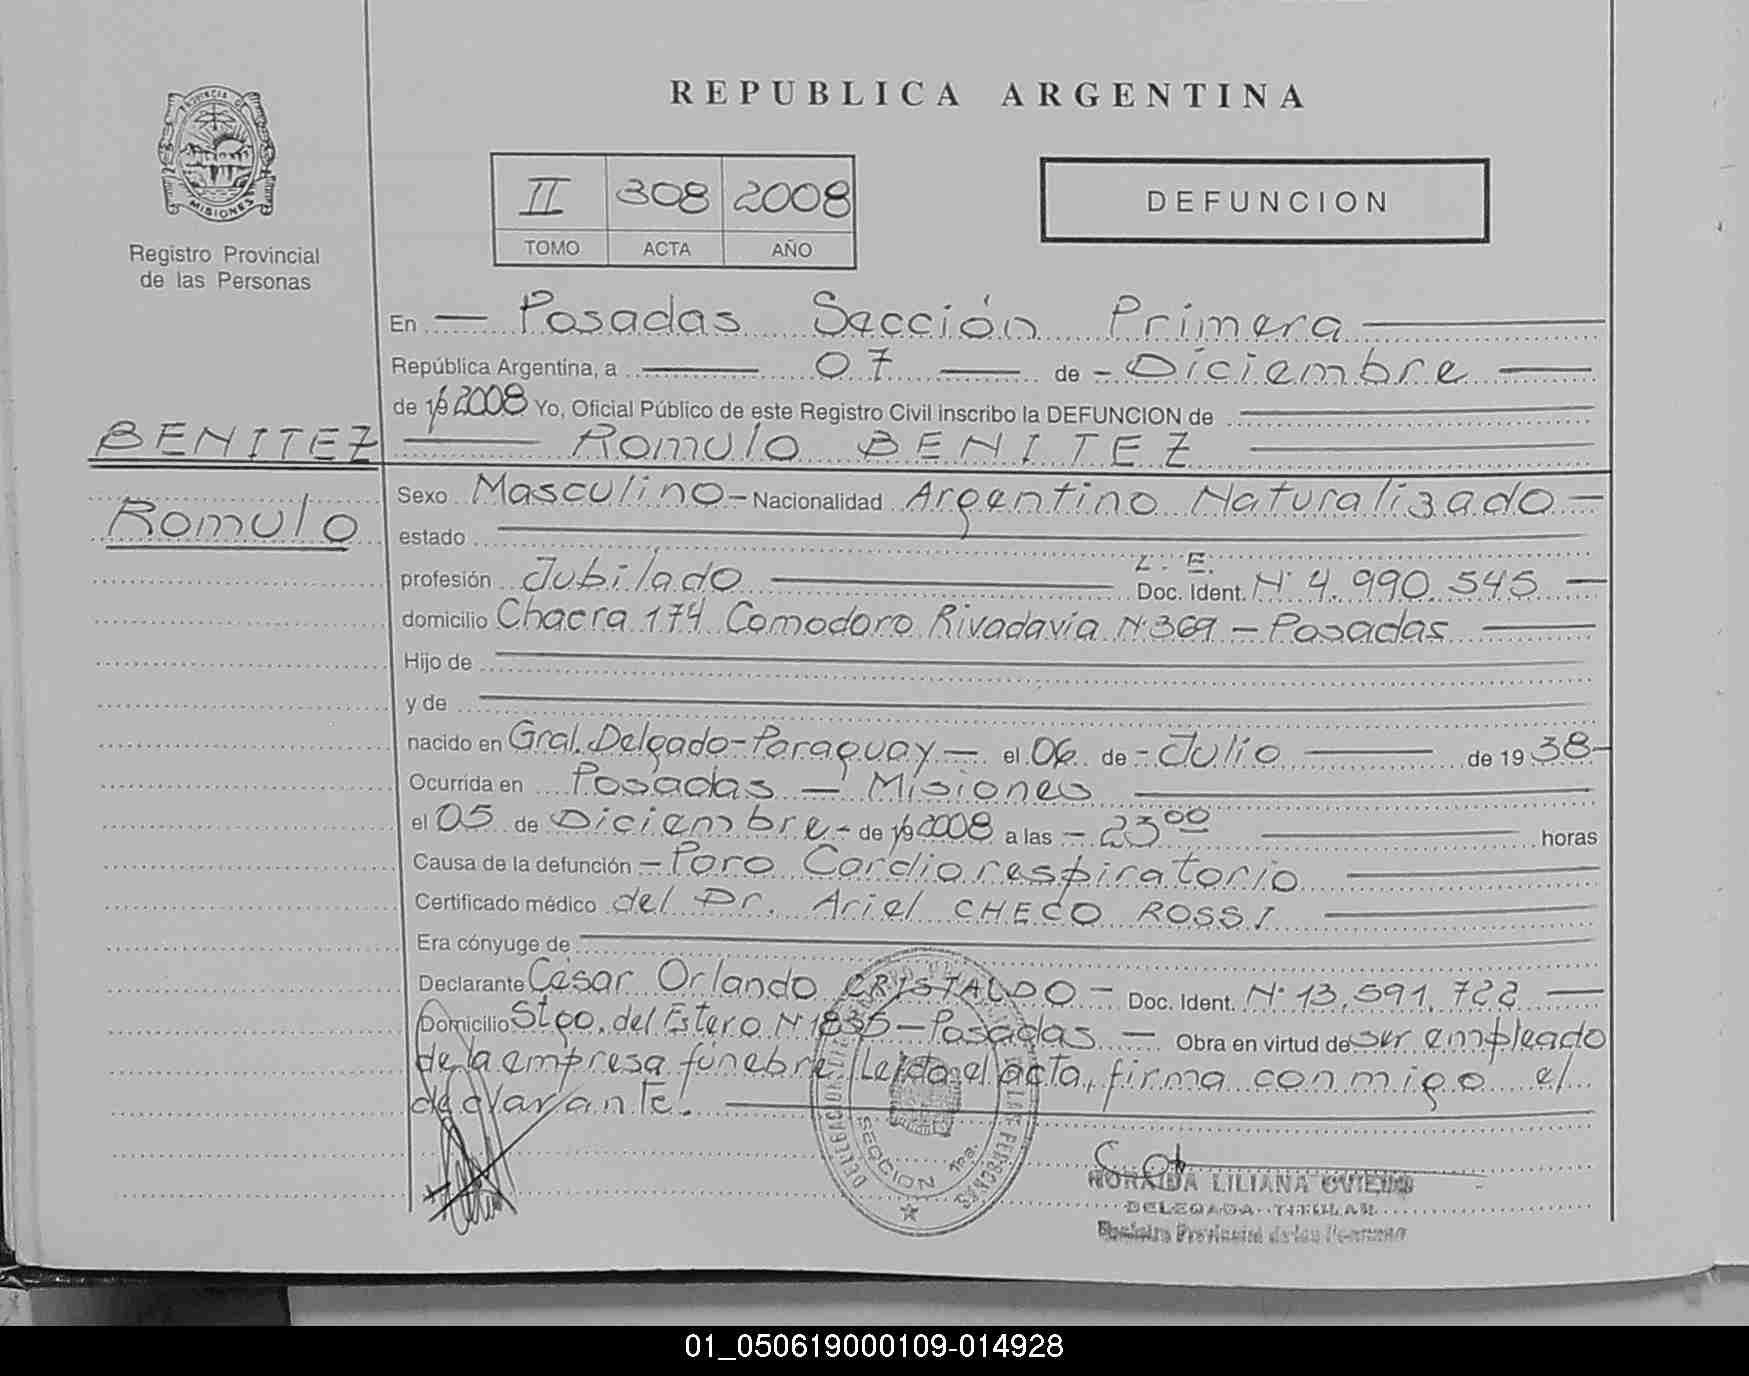 REPUBLICA ARGENTINA
PROVINCIA DE
MISIONES
Registro Provincial
de las Personas
II 308 2008
TOMO ACTA AÑO
DEFUNCION
En — Posadas Sección Primera —
República Argentina, a — 07 — de - Diciembre —
de 19 2008 Yo, Oficial Público de este Registro Civil inscribo la DEFUNCION de
BENITEZ
— Romulo BENITEZ —
Romulo
Sexo Masculino - Nacionalidad Argentino Naturalizado —
estado —
L. E.
profesión Jubilado — Doc. Ident. Nº 4.990.545 —
domicilio Chacra 174 Comodoro Rivadavia Nº 369 - Posadas —
Hijo de —
y de —
nacido en Gral. Delgado - Paraguay — el 06 de - Julio — de 19 38 -
Ocurrida en Posadas — Misiones —
el 05 de Diciembre - de 19 2008 a las - 23 00 — horas
Causa de la defunción - Paro Cardiorespiratorio —
Certificado médico del Dr. Ariel CHECO ROSSI —
Era cónyuge de —
Declarante César Orlando CRISTALDO - Doc. Ident. Nº 13.591.722 —
Domicilio Stgo. del Estero Nº 1835 - Posadas — Obra en virtud de ser empleado
de la empresa fúnebre. Leída el acta, firma conmigo el
declarante. —
SECCION 1ra.
LILIANA OVIEDO
DELEGADA TITULAR
Registro Provincial de las Personas
01_050619000109-014928